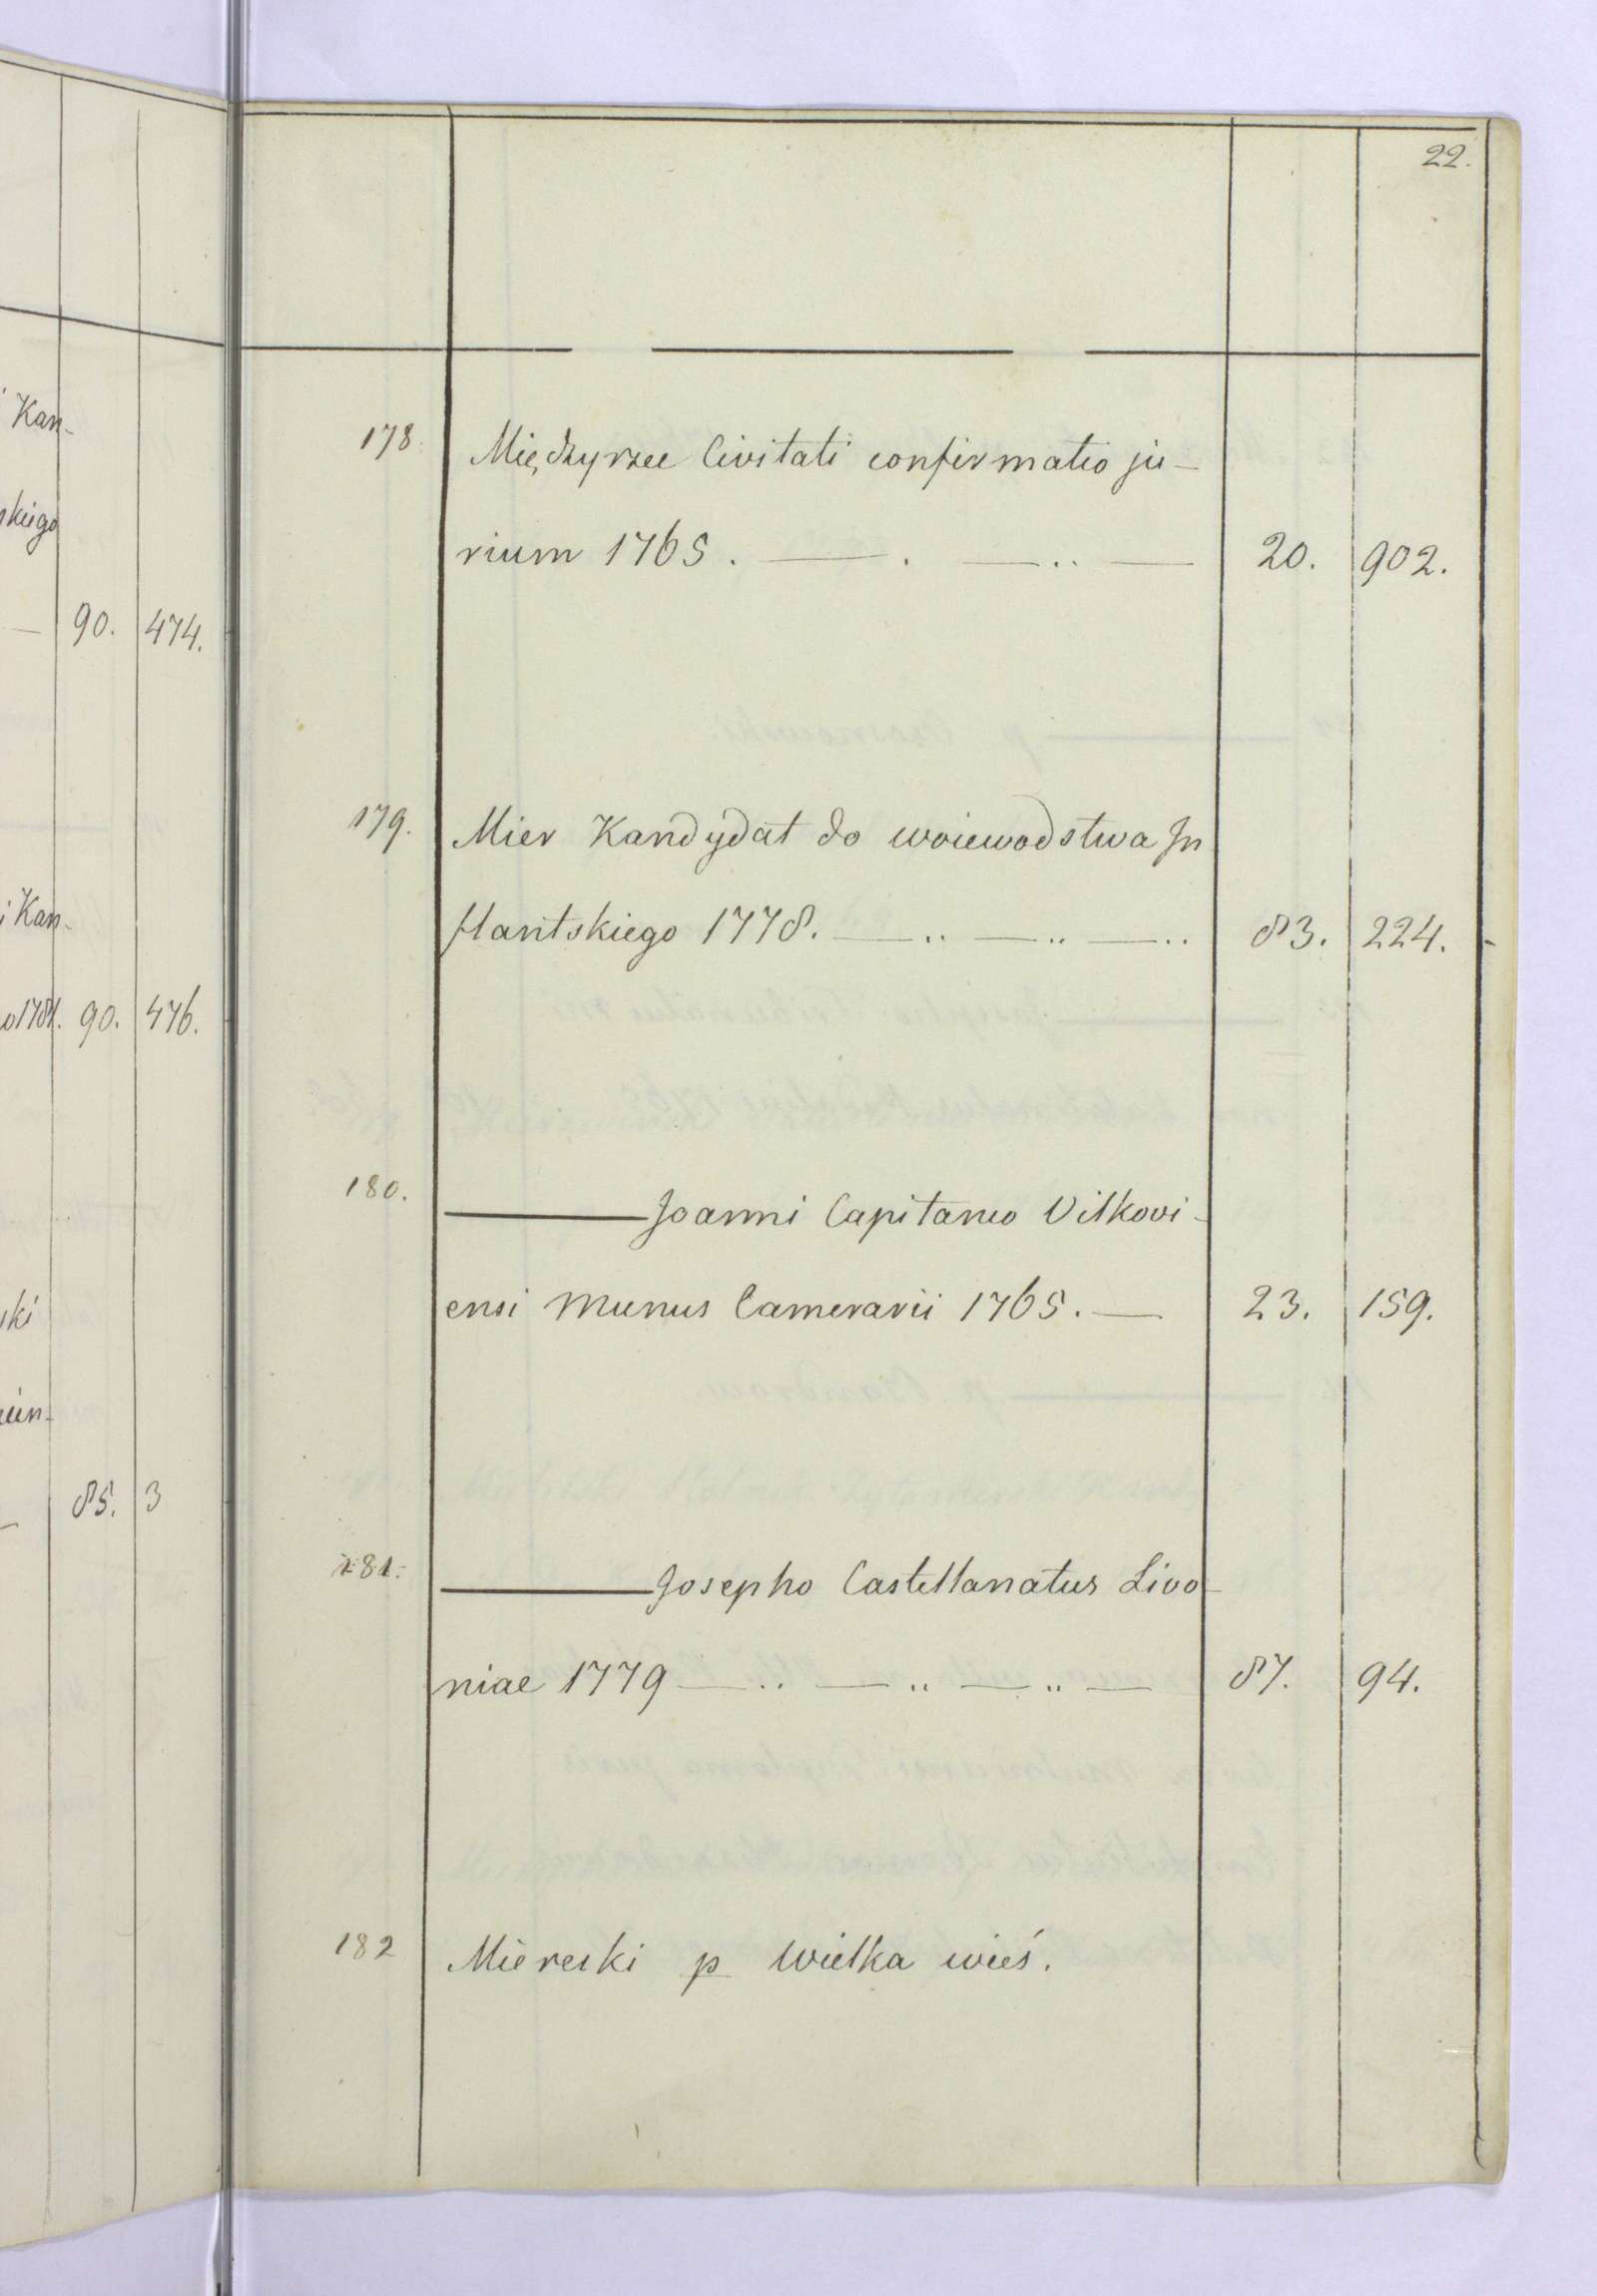 Kan-
skiego
— 90. 474.
i Kan-
o 1781. 90. 476.
ski
— 85. 3
22.
178. Międzyrzec Civitati confirmatio ju-
rium 1765. — . — .. — 20. 902.
179. Mier Kandydat do woiewodstwa In
flantskiego 1778. — .. — .. — .. 83. 224.
180. — Joanni Capitaneo Vilkovi-
ensi Munus Camerarii 1765. — 23. 159.
181. — Josepho Castellanatus Livo-
niae 1779 — .. — .. — .. — 87. 94.
182 Miereski p Wielka wieś.